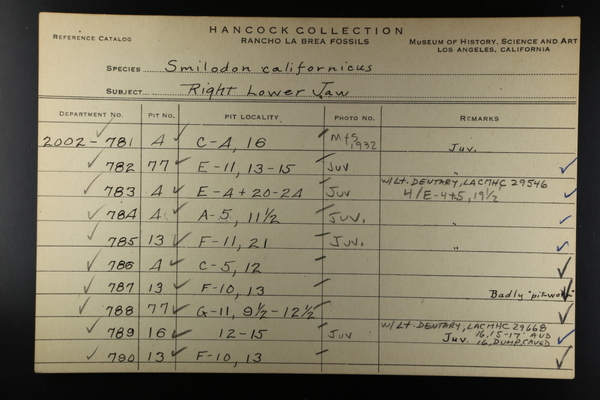 HANCOCK COLLECTION
REFERENCE CATALOG RANCHO LA BREA FOSSILS MUSEUM OF HISTORY, SCIENCE AND ART
LOS ANGELES, CALIFORNIA
SPECIES Smilodon californicus
SUBJECT Right Lower Jaw
DEPARTMENT NO. PIT NO. PIT LOCALITY PHOTO NO. REMARKS
2002-781 4 C-4, 16 M+S 1932 Juv.
782 77 E-11, 13-15 Juv "
783 4 E-4+20-24 Juv W/Lt. DENTARY, LACMHC 29546
4/E-4+5, 19½
784 4 A-5, 11½ Juv. "
785 13 F-11, 21 Juv. "
786 4 C-5, 12
787 13 F-10, 13 Badly "pit-worn"
788 77 G-11, 9½-12½
789 16 12-15 Juv W/Lt. DENTARY, LACMHC 29668
Juv. 16, 15-17' AND
16, DUMP, CAVED
790 13 F-10, 13